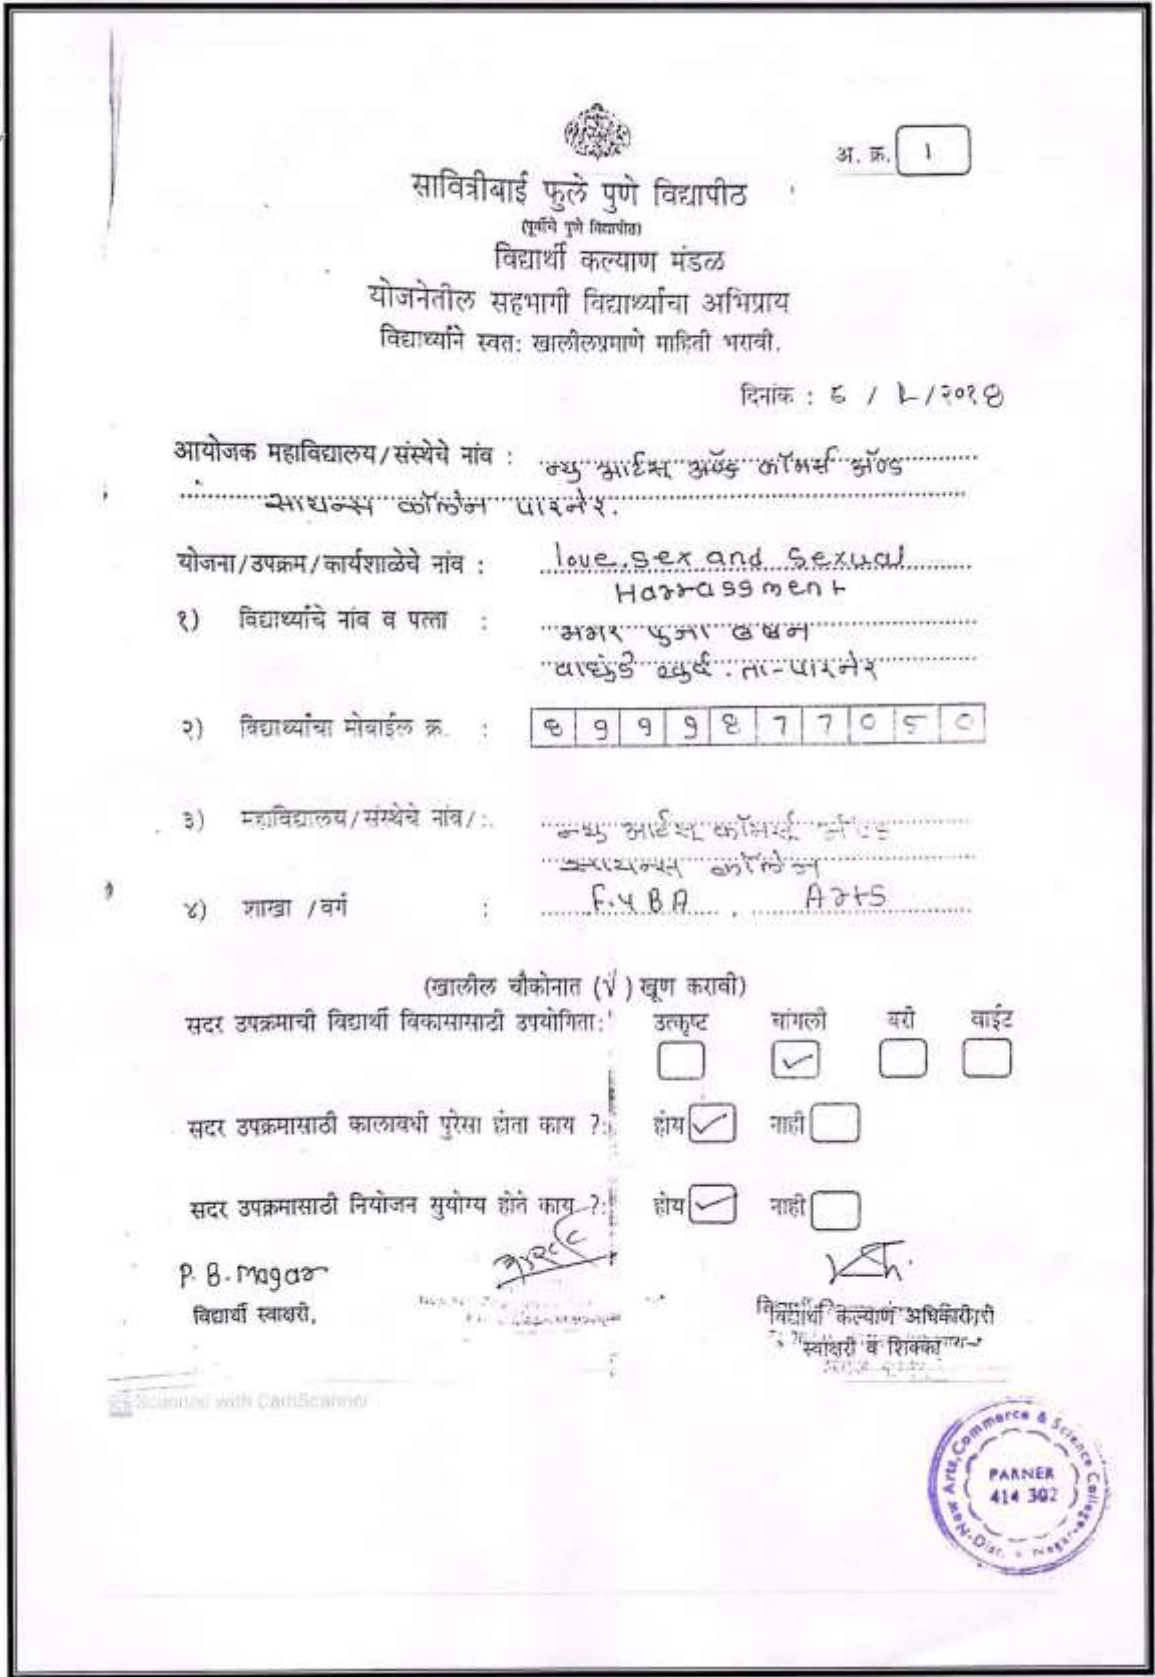 अ. क्र. 1
सावित्रीबाई फुले पुणे विद्यापीठ
(पूर्वीचे पुणे विद्यापीठ)
विद्यार्थी कल्याण मंडळ
योजनेतील सहभागी विद्यार्थ्यांचा अभिप्राय
विद्यार्थ्याने स्वतः खालीलप्रमाणे माहिती भरावी.
दिनांक :
आयोजक महाविद्यालय/संस्थेचे नांव : न्यु आर्टस् अॅण्ड कॉमर्स अॅण्ड
सायन्स कॉलेज पारनेर.
योजना/उपक्रम/कार्यशाळेचे नांव : love, sex and Sexual
Harrassment
१) विद्यार्थ्याचे नांव व पत्ता : मगर पुजा बबन
वाघुंडे खुर्द. ता-पारनेर
२) विद्यार्थ्याचा मोबाईल क्र. :
३) महाविद्यालय/संस्थेचे नांव/:. न्यु आर्टस् कॉमर्स अॅण्ड
सायन्स कॉलेज
४) शाखा /वर्ग : F.Y BA , Arts
(खालील चौकोनात (√) खूण करावी)
सदर उपक्रमाची विद्यार्थी विकासासाठी उपयोगिता: उत्कृष्ट चांगली बरी वाईट
सदर उपक्रमासाठी कालावधी पुरेसा होता काय ?: होय नाही
सदर उपक्रमासाठी नियोजन सुयोग्य होते काय ?: होय नाही
P. B. Magar
विद्यार्थी स्वाक्षरी,
विद्यार्थी कल्याण अधिकारी
स्वाक्षरी व शिक्का
Scanned with CamScanner
New Arts, Commerce & Science College
PARNER
414 302
Dist.